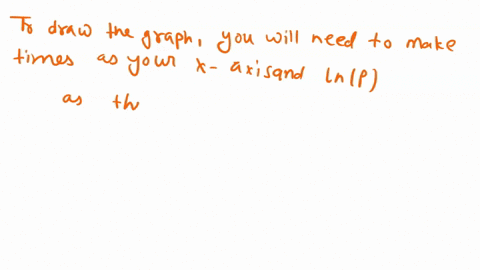 To draw the graph, you will need to make
times as your x-axis and ln(P)
as th